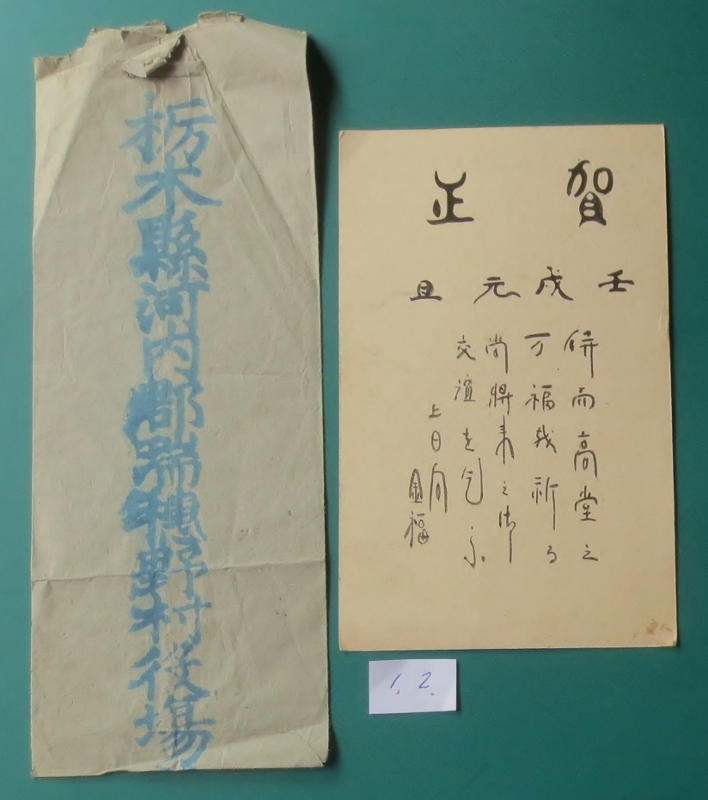 栃木縣河内郡瑞穂野村役場
賀正
壬戌元旦
併而高堂之
万福 祈る
尚將来之御
交誼を乞ふ
上日向
福
1. 2.